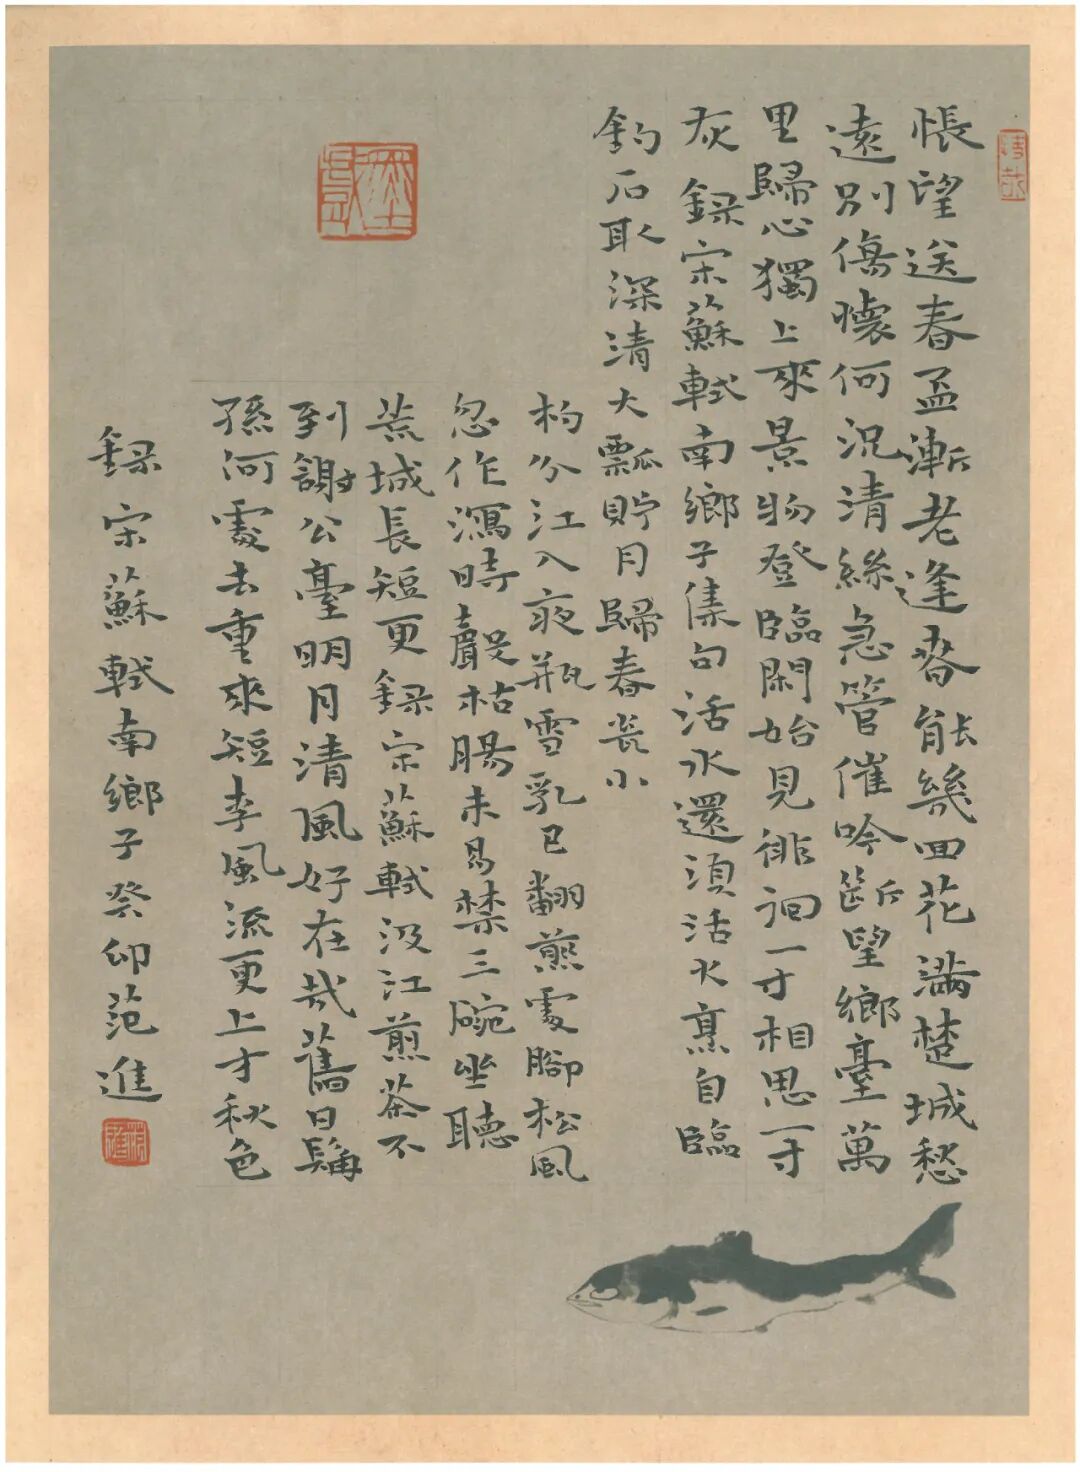 悵望送春盃漸老逢春能幾回花滿楚城愁
遠別傷懷何況清絲急管催吟斷望鄉臺萬
里歸心獨上來景物登臨閑始見徘徊一寸相思一寸
灰 錄宋蘇軾南鄉子集句活水還須活火烹自臨
釣石取深清大瓢貯月歸春瓮小
杓分江入夜瓶雪乳已翻煎處腳松風
忽作瀉時聲枯腸未易禁三碗坐聽
荒城長短更錄宋蘇軾汲江煎茶不
到謝公臺明月清風好在哉舊日髯
孫何處去重來短李風流更上才秋色
錄宋蘇軾南鄉子癸卯范進